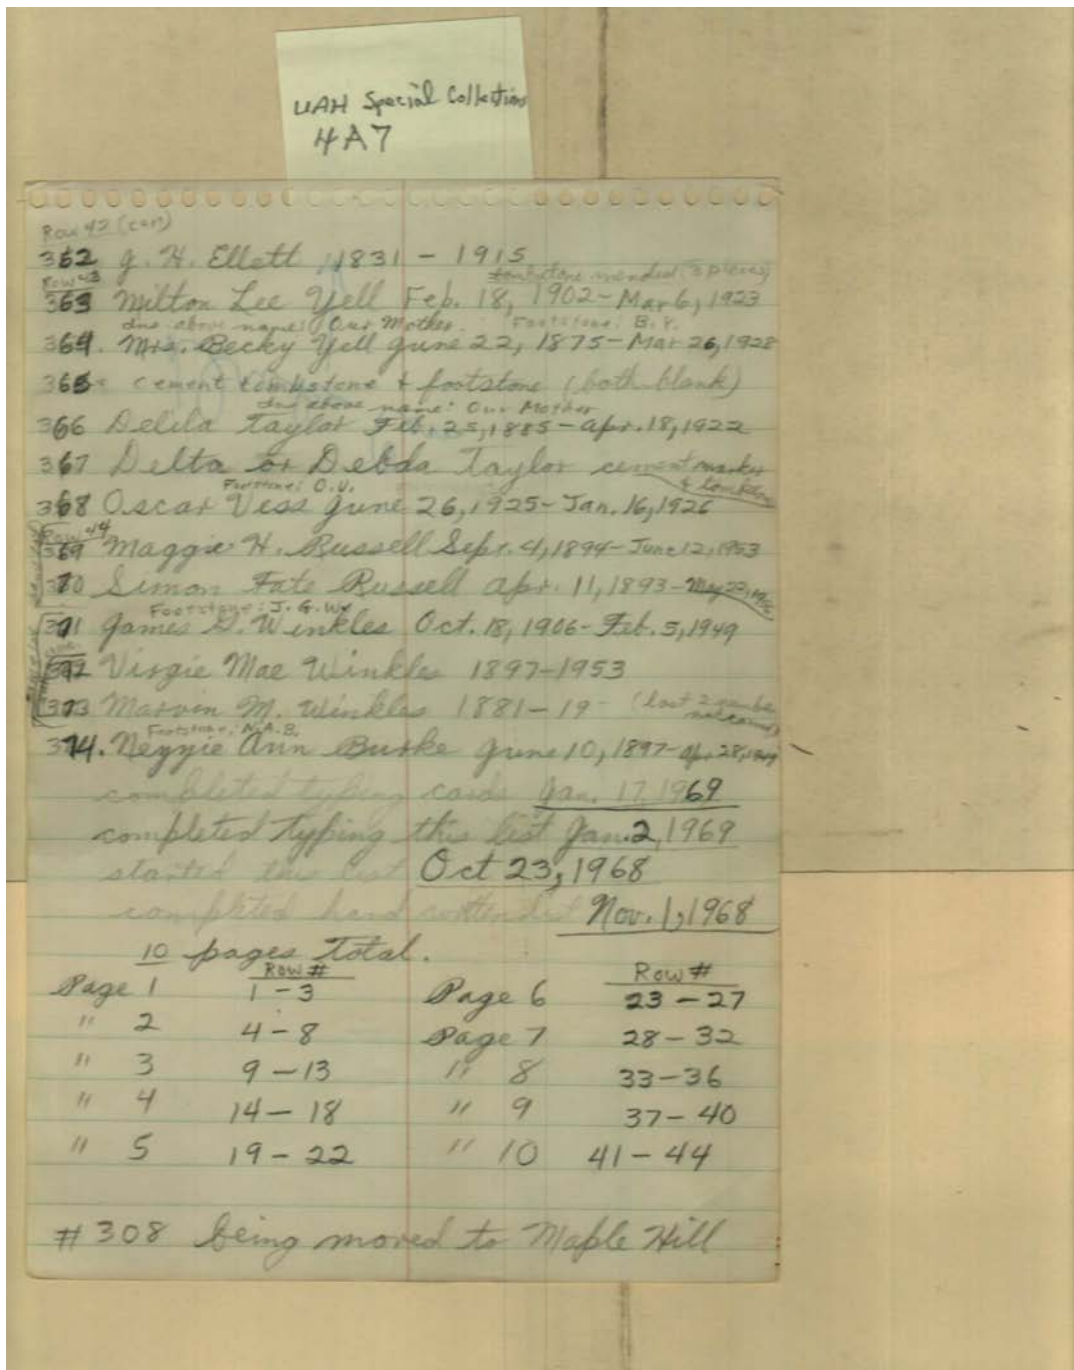 UAH Special Collections
4A7
Row 42 (con)
362 G. H. Ellett 1831 - 1915
tombstone mended (3 pieces)
Row 43
363 Milton Lee Yell Feb. 18, 1902 - Mar 6, 1923
ins above name: Our Mother. Footstone: B. Y.
364. Mrs. Becky Yell June 22, 1875 - Mar 26, 1928
365 cement tombstone + footstone (both blank)
ins above name: Our Mother
366 Delila Taylor Feb. 25, 1885 - Apr. 18, 1922
367 Delta or Debda Taylor cement marker
& tombstone
Footstone: O.V.
368 Oscar Vess June 26, 1925 - Jan. 16, 1926
Row 44
369 Maggie H. Russell Sept. 4, 1894 - June 12, 1953
370 Simon Fate Russell Apr. 11, 1893 - May 22,
Footstone: J. G. W.
371 James G. Winkles Oct. 18, 1906 - Feb. 5, 1949
372 Virgie Mae Winkles 1897-1953
373 Marvin M. Winkles 1881-19- (last 2 numbers
not carved)
Footstone: N.A.B.
374. Neggie Ann Burke June 10, 1897 - Apr. 28, 1949
completed typing cards Jan. 17, 1969
completed typing this list Jan. 2, 1969
started this list Oct 23, 1968
completed hand written list Nov. 1, 1968
10 pages Total.
Row # Row #
Page 1 1-3 Page 6 23-27
" 2 4-8 Page 7 28-32
" 3 9-13 " 8 33-36
" 4 14-18 " 9 37-40
" 5 19-22 " 10 41-44
# 308 being moved to Maple Hill